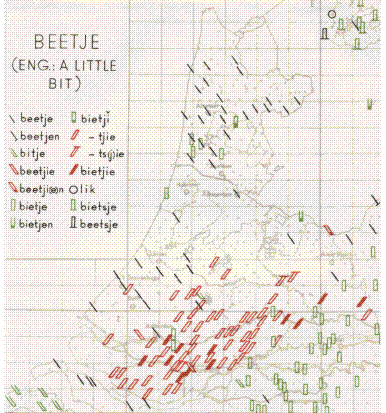 BEETJE
(ENG.: A LITTLE
BIT)
beetje
beetjen
bitje
beetjie
bietje
bietjen
bietjĭ
-tjie
bietjie
olik
bietsje
beetsje